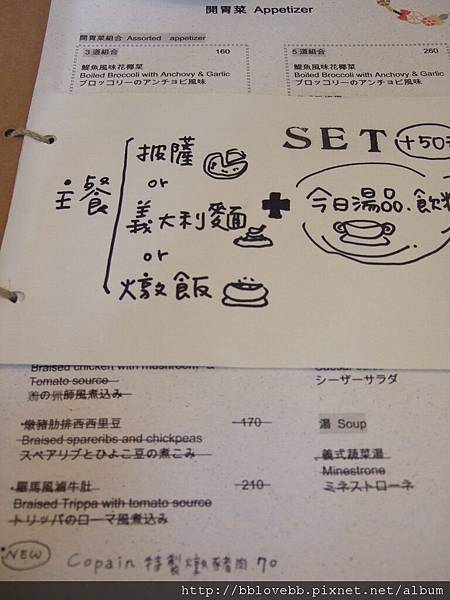 開胃菜 Appetizer
開胃菜組合 Assorted appetizer
3道組合 160
鯷魚風味花椰菜
Boiled Broccoli with Anchovy & Garlic
ブロッコリーのアンチョビ風味
5道組合 260
鯷魚風味花椰菜
Boiled Broccoli with Anchovy & Garlic
ブロッコリーのアンチョビ風味
SET +50
主餐
披薩
or
義大利麵
or
燉飯
今日湯品.飲料
Braised chicken with mushroom &
Tomato source
シーザーサラダ
燉豬肋排西西里豆 170
Braised spareribs and chickpeas
スペアリブとひよこ豆の煮こみ
湯 Soup
義式蔬菜湯
Minestrone
ミネストローネ
羅馬風滷牛肚 210
Braised Trippa with tomato source
トリッパのローマ風煮込み
NEW Copain 特製燉豬肉.70
http://bblovebb.pixnet.net/album